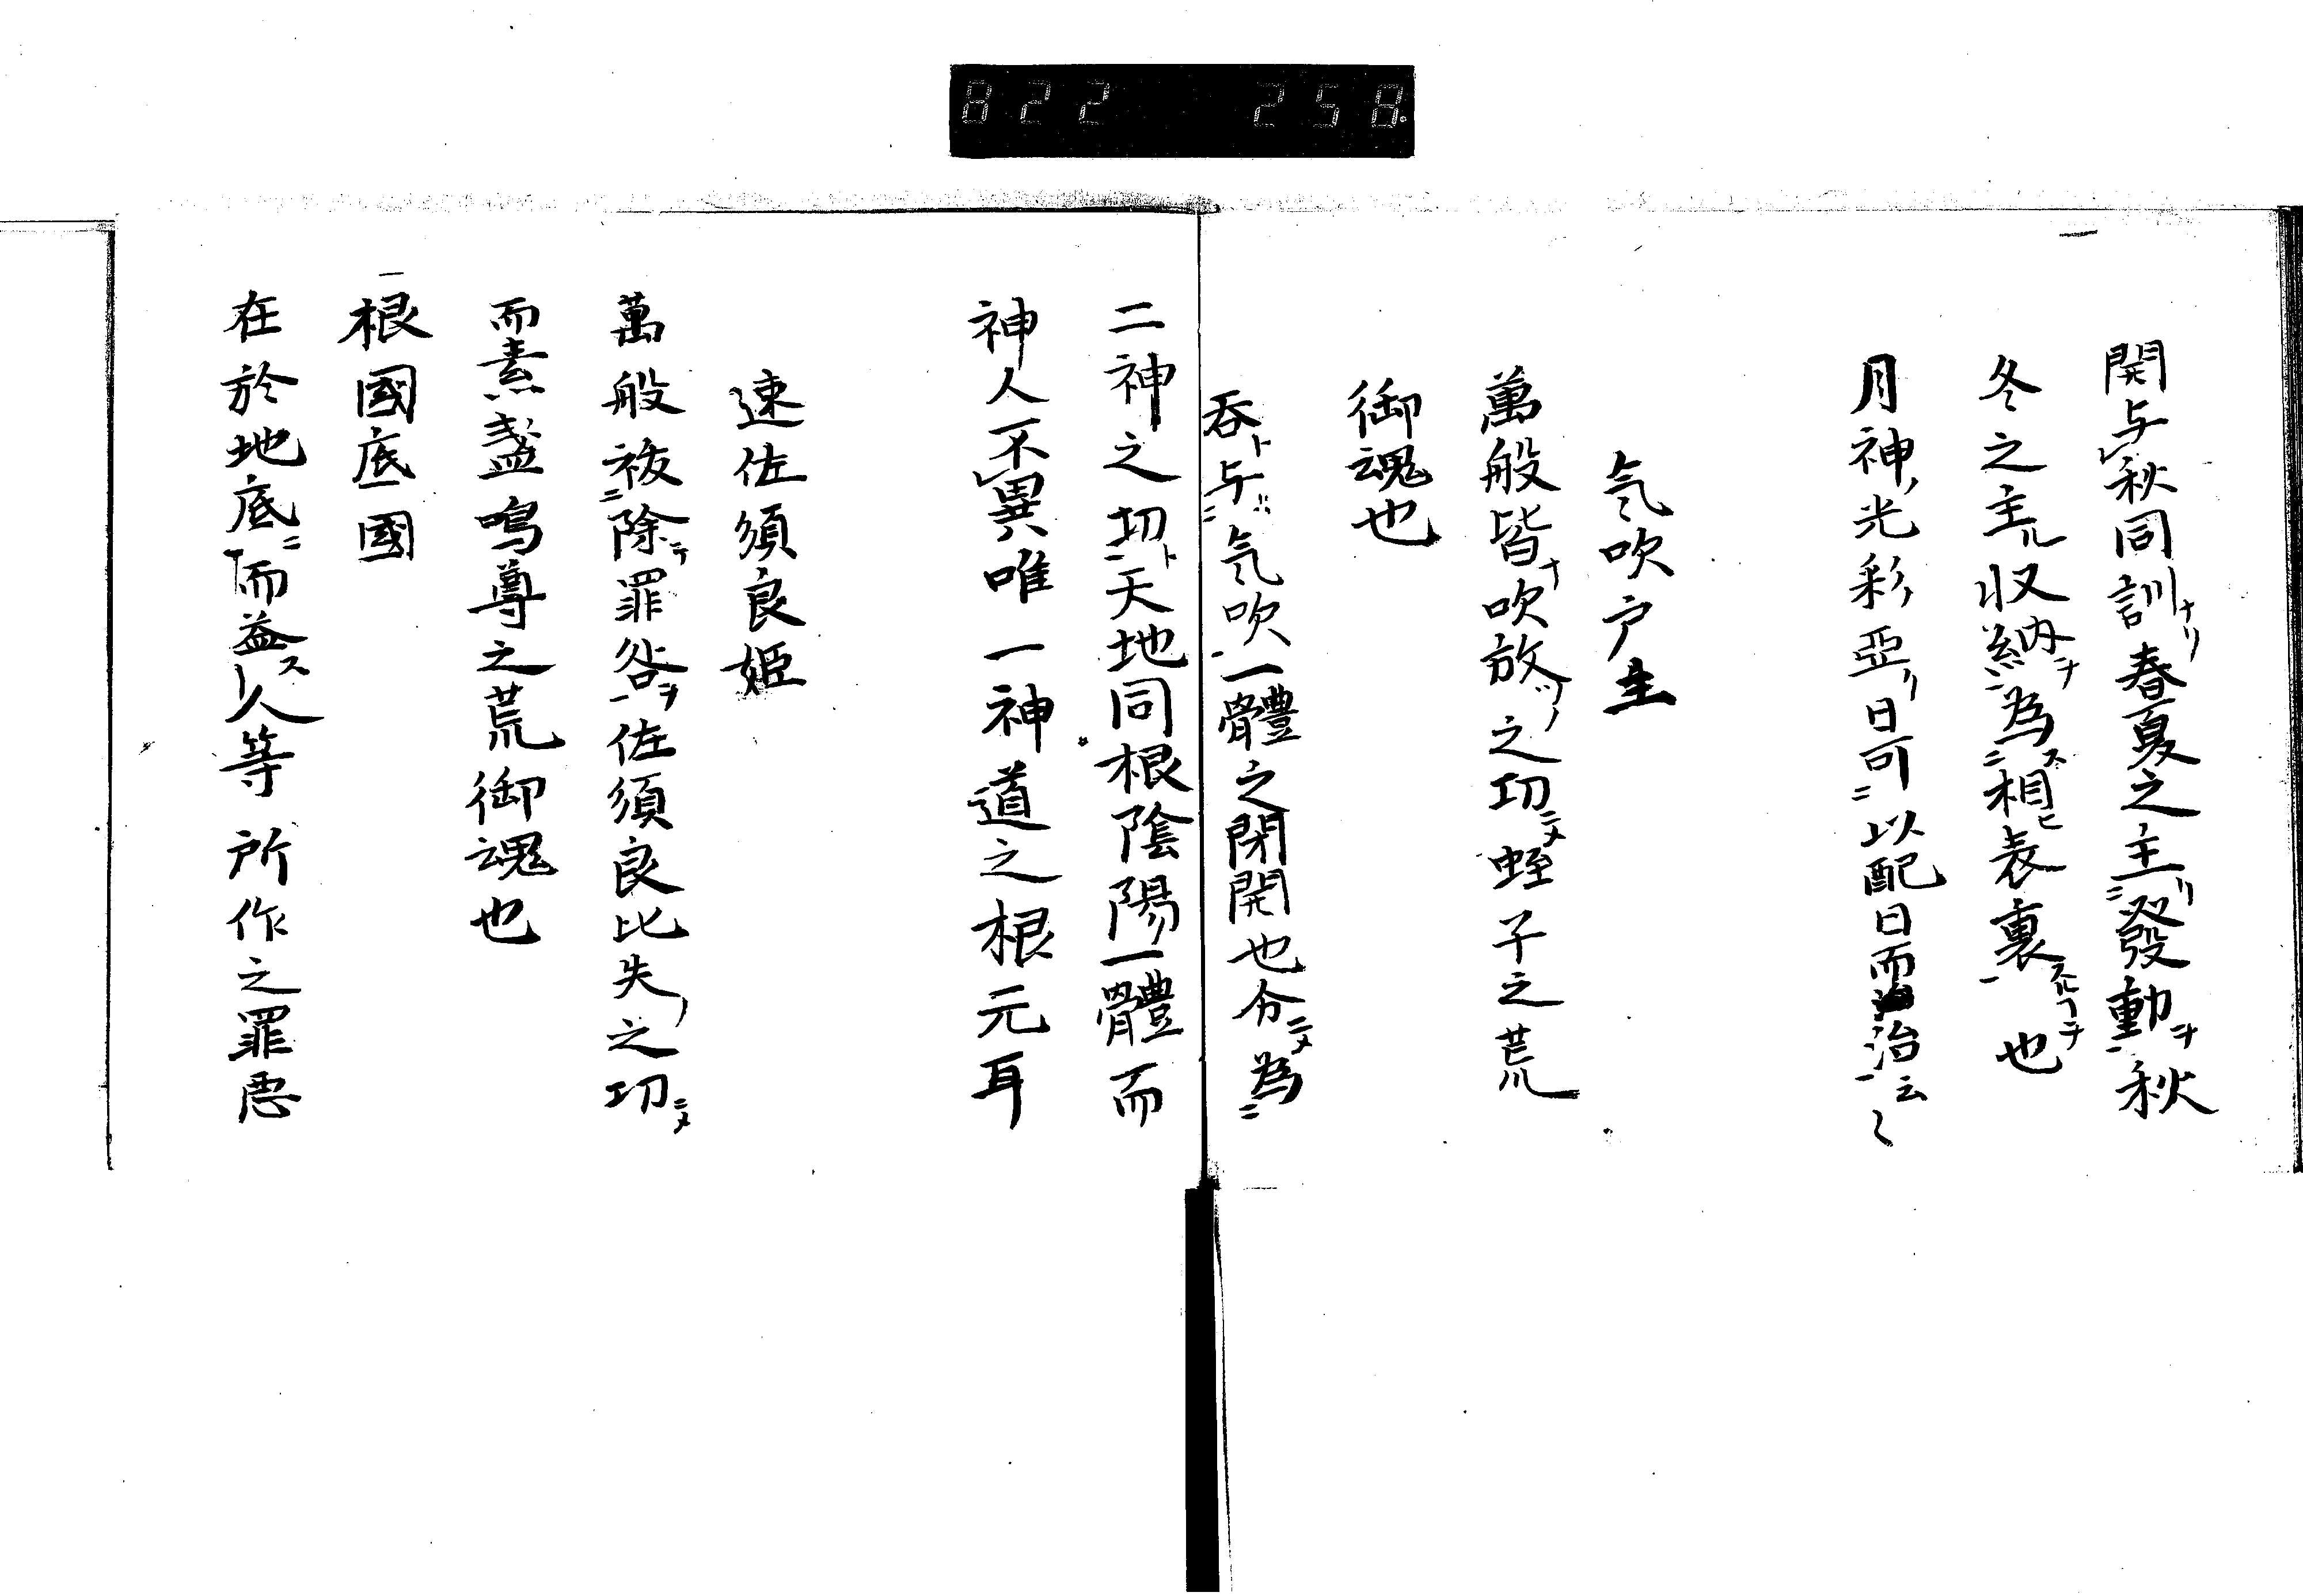 822 258.
開与レ秋同訓ナリ春夏之主リ二發動ヲ一秋
冬之主ル二収納ヲ一為ス二相ヒ表裏一スルコヲ也
月神ノ光彩ノ亞リ日可二以配日而治一云〻
気吹戸主
萬般皆ナ吹放ツノ之功ニメ蛭子之荒
御魂也
呑ト与ハ二気吹一一體之閉開也分ニメ為二
二神之切ト一天地同根陰陽一體而
神人不レ異唯一神道之根元耳
速佐須良姫
萬般祓二除テ罪咎ヲ一佐須良比失ノ之功ニメ
而素盞嗚尊之荒御魂也
一根國底國
在於地底ニ而益ス人等所作之罪悪